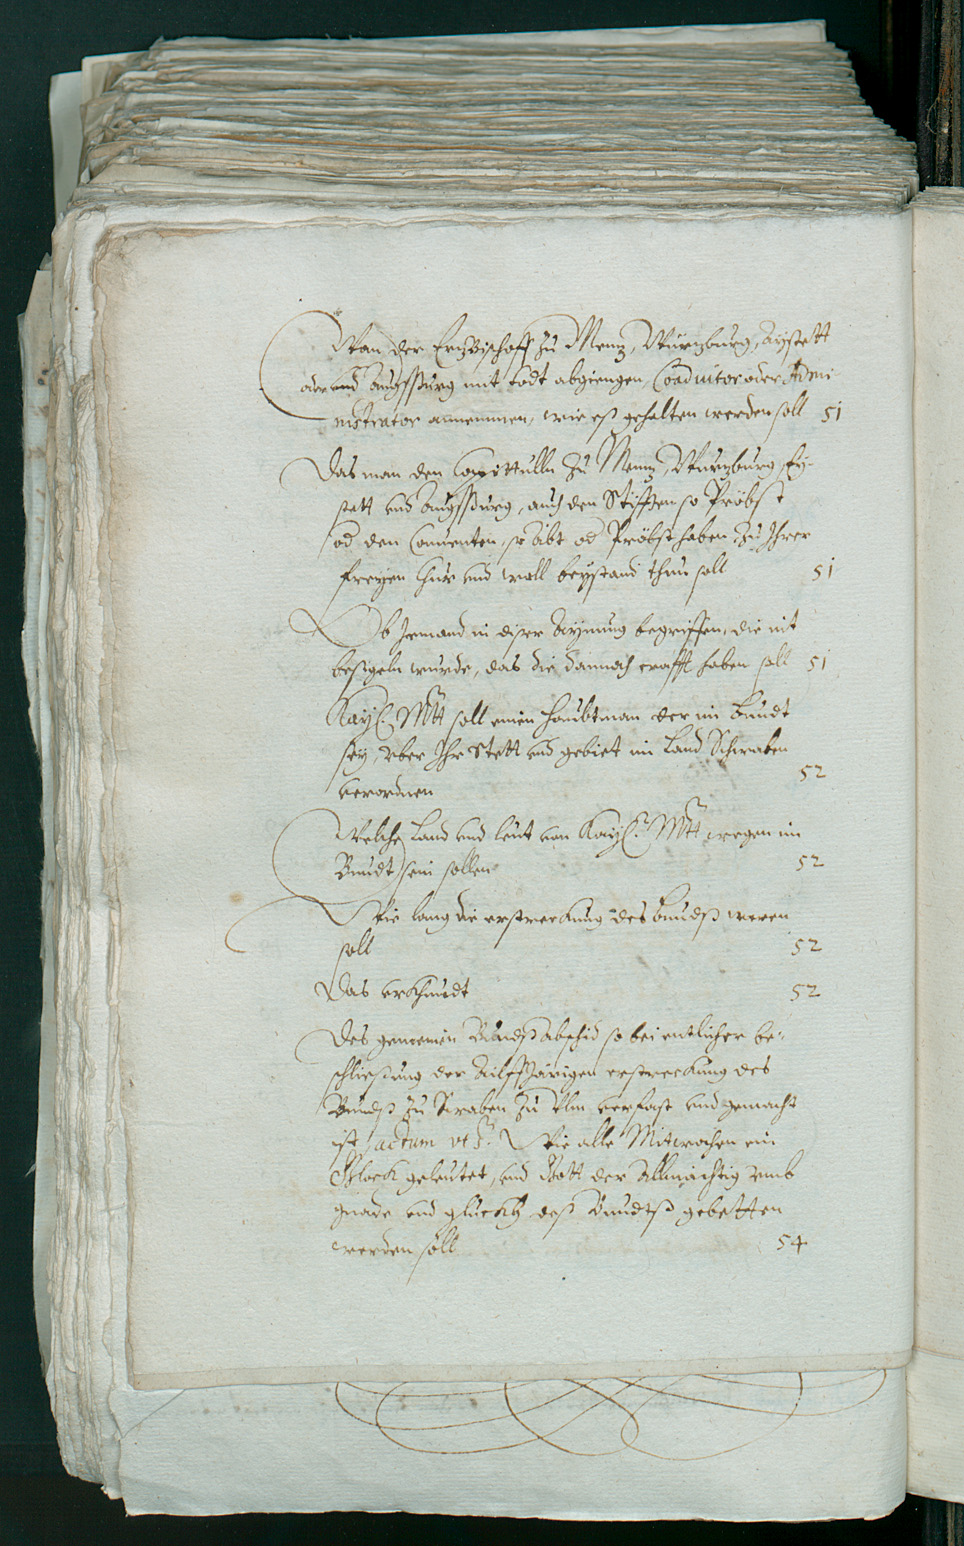 Wan der Erzbischoff zu Menz, Würzburg, Aystett
oder und Augspurg mit todt abgiengen, Coadiutor oder Admi-
nistrator annemmen, wie es gehalten werden soll 51
Das man den Capittulln zu Menz, Wurzburg, Ey-
stett und Augspurg, auch den Stifften so Pröbst
od den Conventen, so Äbt od Pröbst haben, zu Ihrer
freyen Chur und wall beystand thun soll 51
Ob Iemand in diser Aynung begriffen, die nit
besigeln wurde, das die dannoch crafft haben soll 51
Kayß. Mtt soll einen Haubtman der im Bundt
sey, vber Ihr Stett und gebiet im Land Schwaben
verordnen 52
Welche Land und leut von Kayß. Mtt wegen im
Bundt sein sollen 52
Wie lang die erstreckung des Bundß weren
soll 52
Das vrkhundt 52
Des gemeinen Bundß abschid so bei entlicher be-
schließung der Ailffjärigen erstreckung des
Bundß zu Swaben zu Ulm verfast und gemacht
ist, actum vt s. Wie alle Mitwochen ein
Glock geleutet, und Gott der Allmächtig umb
gnade und glückh deß Bundtß gebetten
werden soll 54